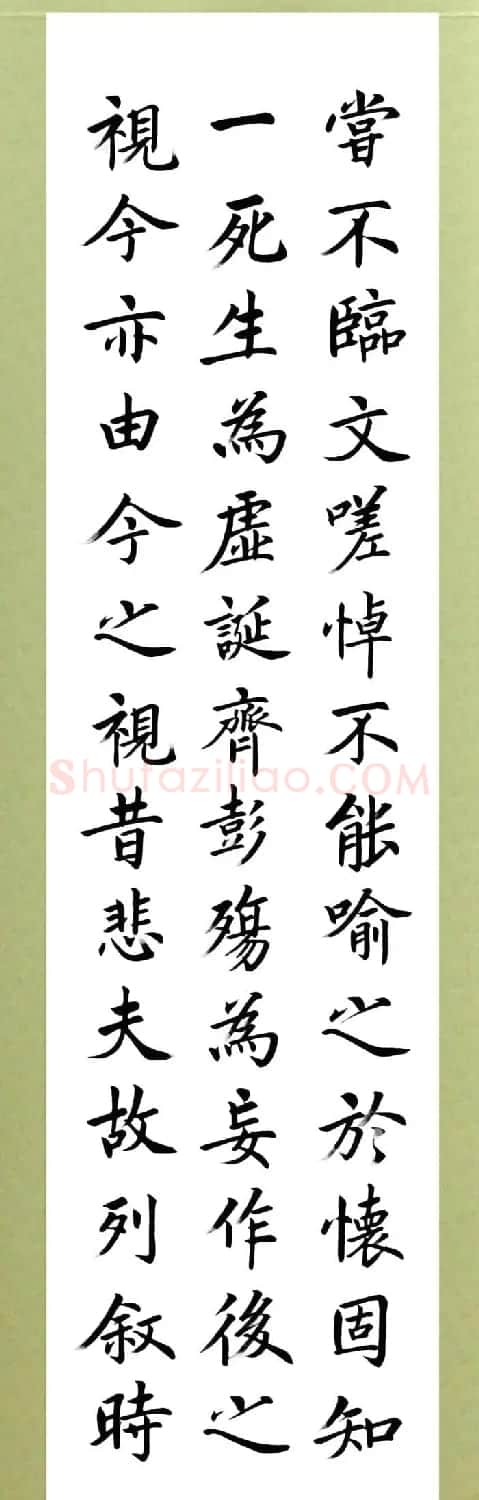 嘗不臨文嗟悼不能喻之於懷固知
一死生為虛誕齊彭殤為妄作後之
視今亦由今之視昔悲夫故列敘時
Shufaziliao.COM